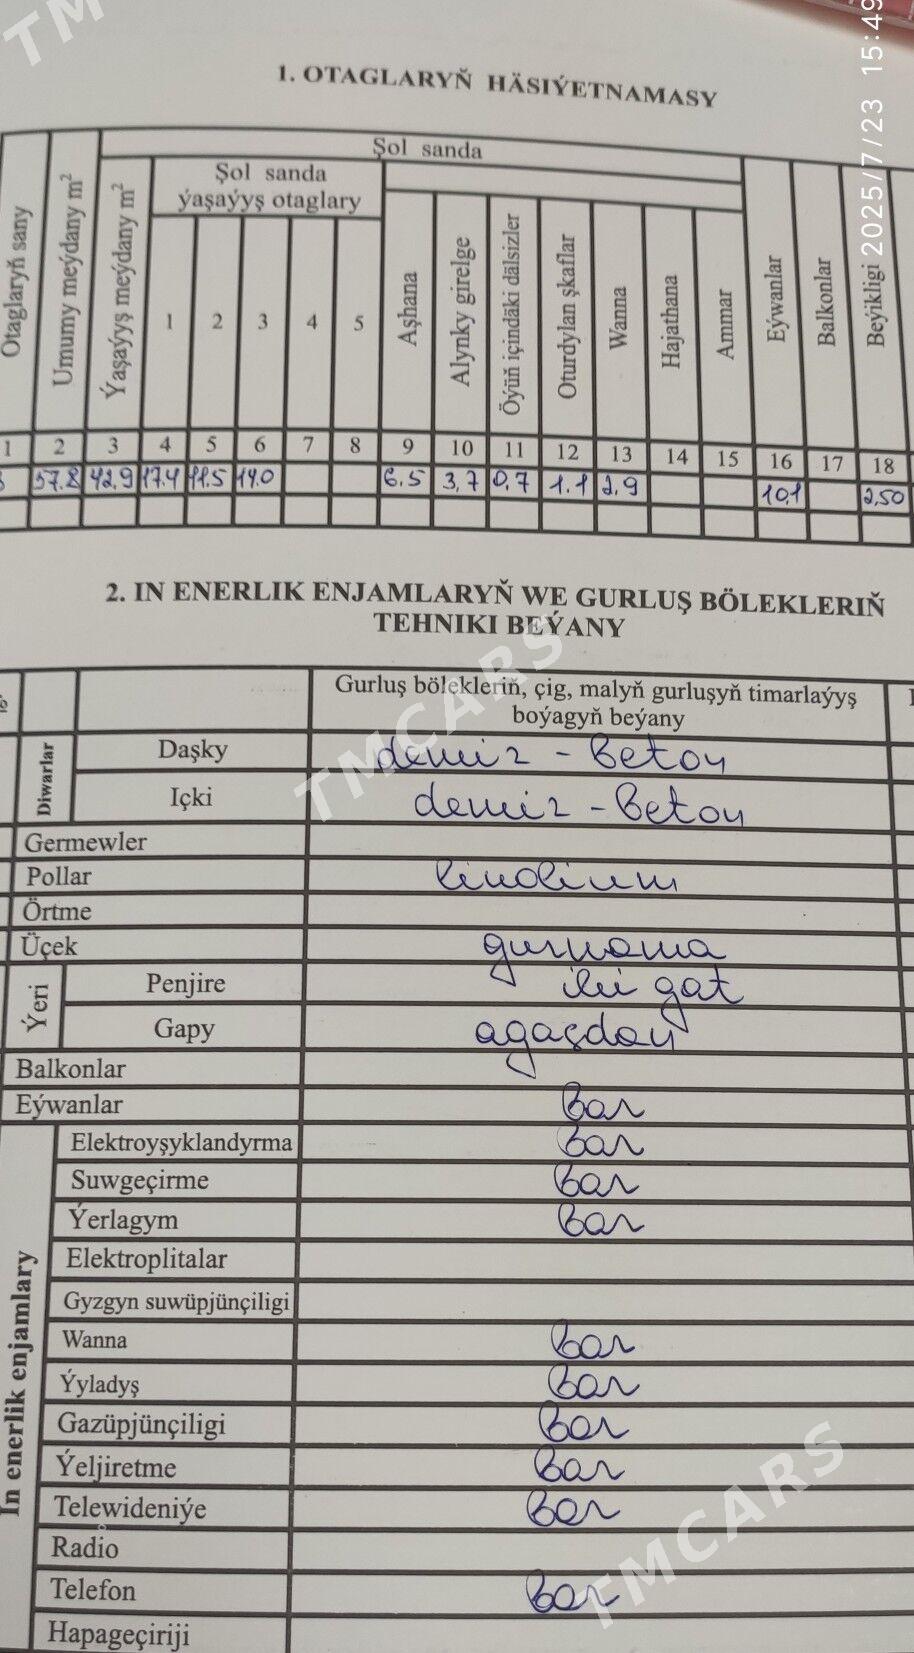 TM
2025/7/23 15:49
1. OTAGLARYŇ HÄSIÝETNAMASY
Şol sanda
Şol sanda
ýaşaýyş otaglary
Otaglaryň sany
Umumy meýdany m²
Ýaşaýyş meýdany m²
1 2 3 4 5
Aşhana
Alynky girelge
Öýüň içindäki dälsizler
Oturdylan şkaflar
Wanna
Hajathana
Ammar
Eýwanlar
Balkonlar
Beýikligi
1 2 3 4 5 6 7 8 9 10 11 12 13 14 15 16 17 18
57.8 42,9 17.4 11.5 14.0 6.5 3,7 0,7 1.1 2,9 10,1 2,50
2. IN ENERLIK ENJAMLARYŇ WE GURLUŞ BÖLEKLERIŇ
TEHNIKI BEÝANY
Gurluş bölekleriň, çig, malyň gurluşyň timarlaýyş
boýagyň beýany
Diwarlar
Daşky demiz - Beton
Içki demiz - Beton
Germewler
Pollar linolium
Örtme
Üçek gurnama
Ýeri
Penjire iki gat
Gapy agaçdan
Balkonlar
Eýwanlar bar
In enerlik enjamlary
Elektroyşyklandyrma bar
Suwgeçirme bar
Ýerlagym bar
Elektroplitalar
Gyzgyn suwüpjünçiligi
Wanna bar
Ýyladyş bar
Gazüpjünçiligi bar
Ýeljiretme bar
Telewideniýe bar
Radio
Telefon bar
Hapageçiriji
TMCARS
TMCARS